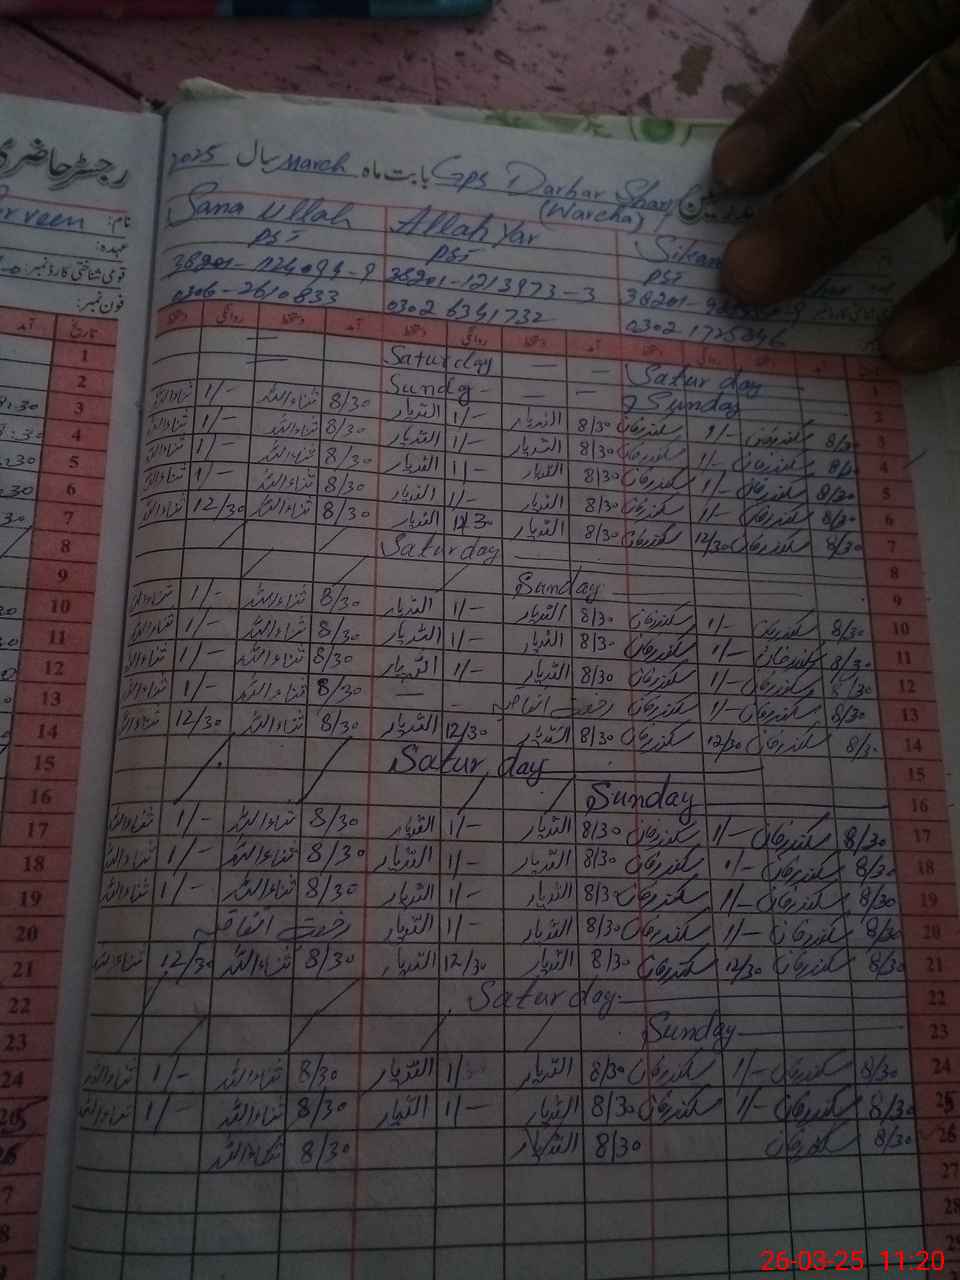 رجسٹر حاضری
2025 سال March بابت ماہ Gps Darbar Shar
(Warcha)
نام: rveen
عہدہ:
قومی شناختی کارڈ نمبر:
فون نمبر:
Sana Ullah Allah Yar Sikan
PST PST PST
38201-1213973-3 38201-
0306-2610833 0302 6341732 0302 1725346
تاریخ آمد دستخط روانگی دستخط آمد دستخط روانگی دستخط
1 Saturday — — Saturday 1
2 Sunday — — Sunday 2
3 ثناء اللہ 1/- ثناء اللہ 8/30 اللہ یار 1/- اللہ یار 8/30 سکندر خان 1/- سکندر خان 8/30 3
4 ثناء اللہ 1/- ثناء اللہ 8/30 اللہ یار 1/- اللہ یار 8/30 سکندر خان 1/- سکندر خان 8/30 4
5 ثناء اللہ 1/- ثناء اللہ 8/30 اللہ یار 1/- اللہ یار 8/30 سکندر خان 1/- سکندر خان 8/30 5
6 ثناء اللہ 1/- ثناء اللہ 8/30 اللہ یار 1/- اللہ یار 8/30 سکندر خان 1/- سکندر خان 8/30 6
7 ثناء اللہ 12/30 ثناء اللہ 8/30 اللہ یار 12/30 اللہ یار 8/30 سکندر خان 12/30 سکندر خان 8/30 7
8 Saturday 8
9 Sunday 9
10 ثناء اللہ 1/- ثناء اللہ 8/30 اللہ یار 1/- اللہ یار 8/30 سکندر خان 1/- سکندر خان 8/30 10
11 ثناء اللہ 1/- ثناء اللہ 8/30 اللہ یار 1/- اللہ یار 8/30 سکندر خان 1/- سکندر خان 8/30 11
12 ثناء اللہ 1/- ثناء اللہ 8/30 اللہ یار 1/- اللہ یار 8/30 سکندر خان 1/- سکندر خان 8/30 12
13 ثناء اللہ 1/- ثناء اللہ 8/30 — - رخصت اتفاقیہ سکندر خان 1/- سکندر خان 8/30 13
14 ثناء اللہ 12/30 ثناء اللہ 8/30 اللہ یار 12/30 اللہ یار 8/30 سکندر خان 12/30 سکندر خان 8/30 14
15 Saturday 15
16 Sunday 16
17 ثناء اللہ 1/- ثناء اللہ 8/30 اللہ یار 1/- اللہ یار 8/30 سکندر خان 1/- سکندر خان 8/30 17
18 ثناء اللہ 1/- ثناء اللہ 8/30 اللہ یار 1/- اللہ یار 8/30 سکندر خان 1/- سکندر خان 8/30 18
19 ثناء اللہ 1/- ثناء اللہ 8/30 اللہ یار 1/- اللہ یار 8/30 سکندر خان 1/- سکندر خان 8/30 19
20 رخصت اتفاقیہ اللہ یار 1/- اللہ یار 8/30 سکندر خان 1/- سکندر خان 8/30 20
21 ثناء اللہ 12/30 ثناء اللہ 8/30 اللہ یار 12/30 اللہ یار 8/30 سکندر خان 12/30 سکندر خان 8/30 21
22 Saturday 22
23 Sunday 23
24 ثناء اللہ 1/- ثناء اللہ 8/30 اللہ یار 1/- اللہ یار 8/30 سکندر خان 1/- سکندر خان 8/30 24
25 ثناء اللہ 1/- ثناء اللہ 8/30 اللہ یار 1/- اللہ یار 8/30 سکندر خان 1/- سکندر خان 8/30 25
26 ثناء اللہ 8/30 اللہ یار 8/30 سکندر خان 8/30 26
27
28
26-03-25 11:20